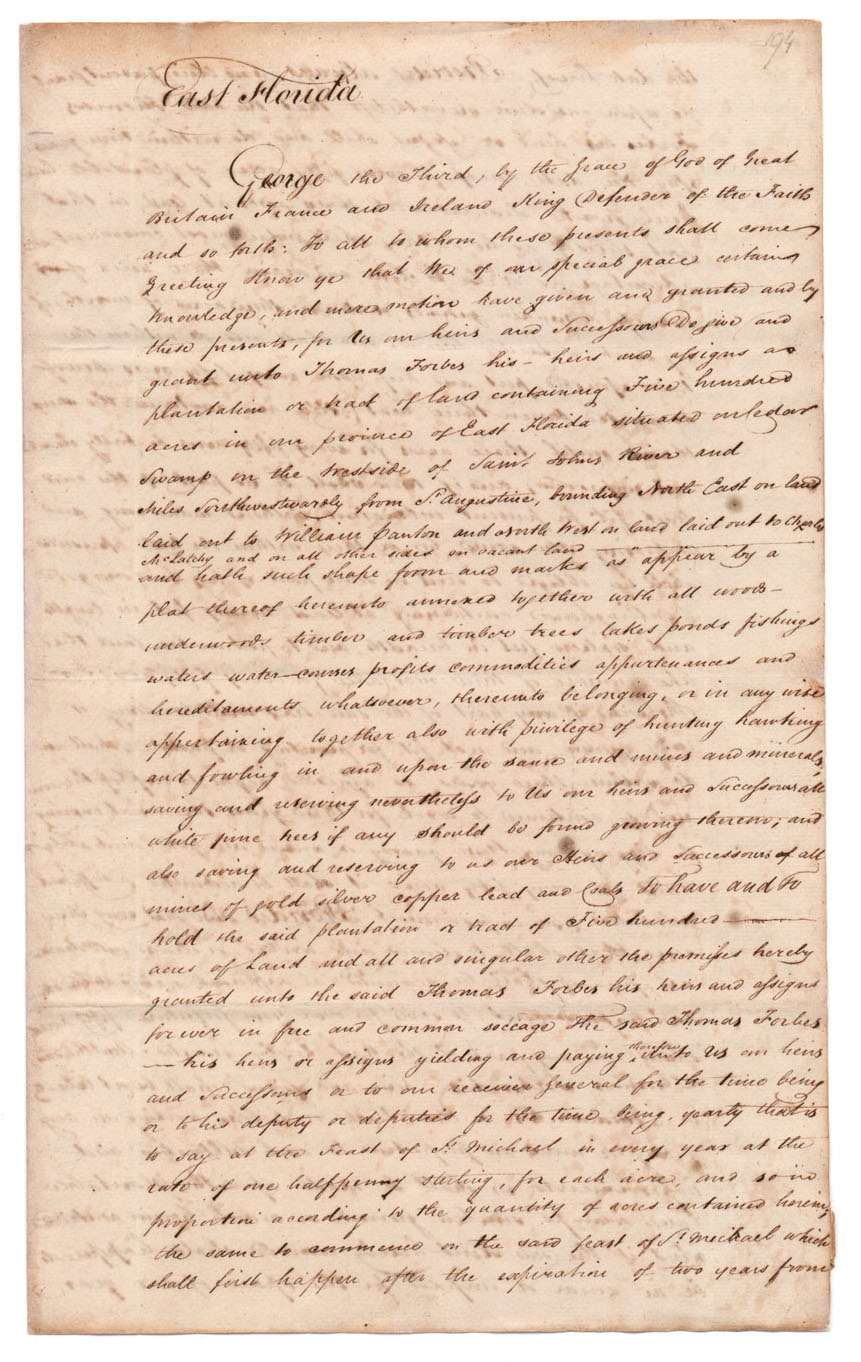 194
East Florida
George the Third, by the Grace of God of Great
Britain France and Ireland King Defender of the Faith
and so forth: To all to whom these presents shall come
Greeting Know ye that We of our special grace certain
knowledge, and mere motion have given and granted and by
these presents, for Us our heirs and Successours Do give and
grant unto Thomas Forbes his - heirs and assigns a
plantation or tract of land containing Five hundred
acres in our province of East Florida situated on Cedar
Swamp on the Westside of Saint Johns River and
Miles Southwestwardly from St Augustine, bounding North East on land
laid out to William Panton and North West on land laid out to Charles
McLatchy and on all other sides on vacant land
and hath such shape form and marks as appear by a
plat thereof hereunto annexed together with all woods -
underwoods timber and timber trees lakes ponds fishings
waters water-courses profits commodities appurtenances and
hereditaments whatsoever, thereunto belonging, or in any wise
appertaining together also with privilege of hunting hawking
and fowling in and upon the same and mines and minerals,
saving and reserving nevertheless to Us our heirs and Successours all
white pine trees if any should be found growing thereon; and
also saving and reserving to us our Heirs and Successours of all
mines of gold silver copper lead and Coals To have and To
hold the said plantation or tract of Five hundred
acres of Land and all and singular other the premises hereby
granted unto the said Thomas Forbes his heirs and assigns
for ever in free and common soccage The said Thomas Forbes
- his heirs or assigns yielding and paying therefore unto Us our heirs
and Successours or to our receiver General for the time being
or to his deputy or deputies for the time being, yearly that is
to say at the Feast of St Michael in every year at the
rate of one halfpenny sterling, for each acre, and so in
proportion according to the quantity of acres contained herein,
the same to commence on the said feast of St Michael which
shall first happen after the expiration of two years from